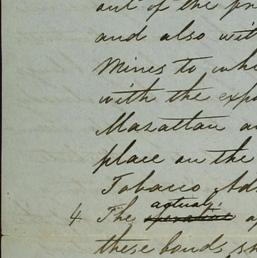 out of the
and also wit
Mines to whi
with the exp
Mazatlan a
place on the
Tobacco Ad
actual
4 The operation a
these bonds sh